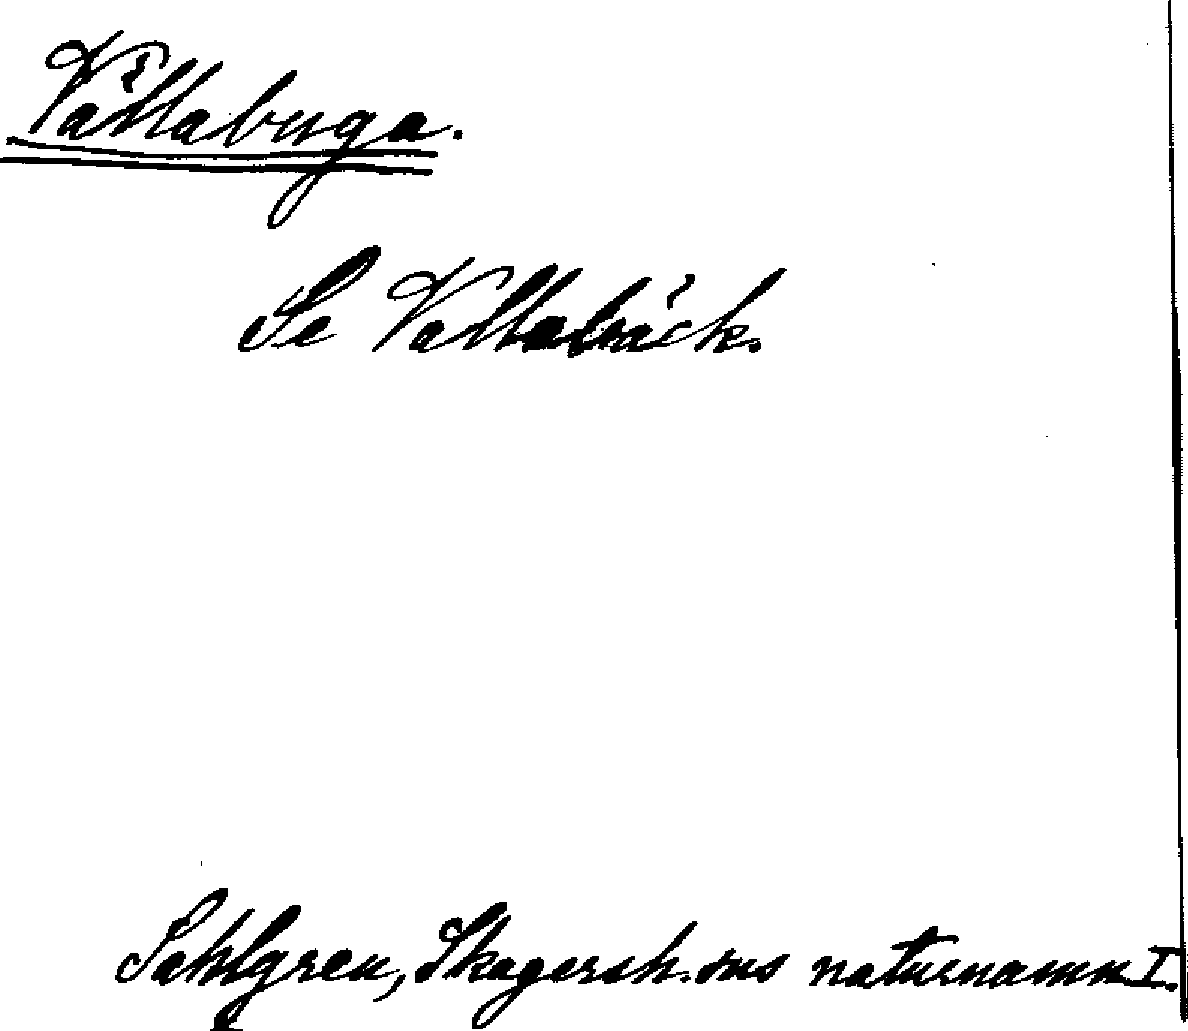 Vättabuga.
Se Vattabäck.
Sahlgren, Skagersh. sns naturnamn I.